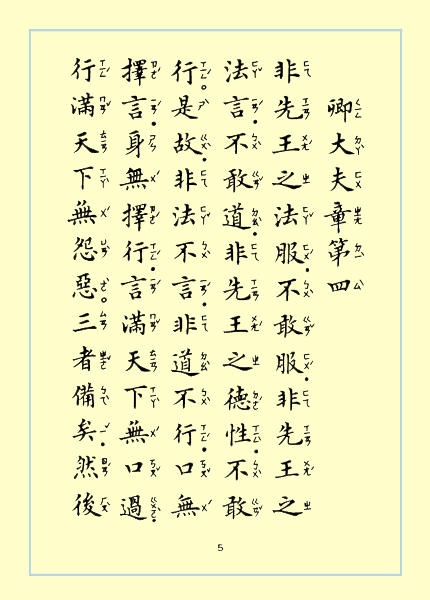 卿大夫章第四
非先王之法服．不敢服．非先王之
法言．不敢道．非先王之德性．不敢
行。是故．非法不言．非道不行．口無
擇言．身無擇行．言滿天下無口過．
行滿天下無怨惡。三者備矣．然後
5